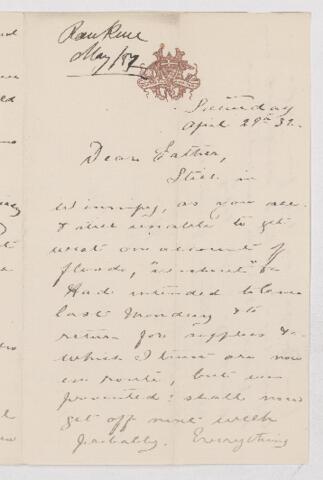 Rankine
May/82
Saturday
April 29th 82.
Dear Father,
Still in
Winnipeg, as you see.
& still unable to get
west on account of
floods, "washout" &c
Had intended to leave
last Monday & to
return for supplies &c
which I think are now
en route, but was
prevented: shall now
get off next week
probably. Everything